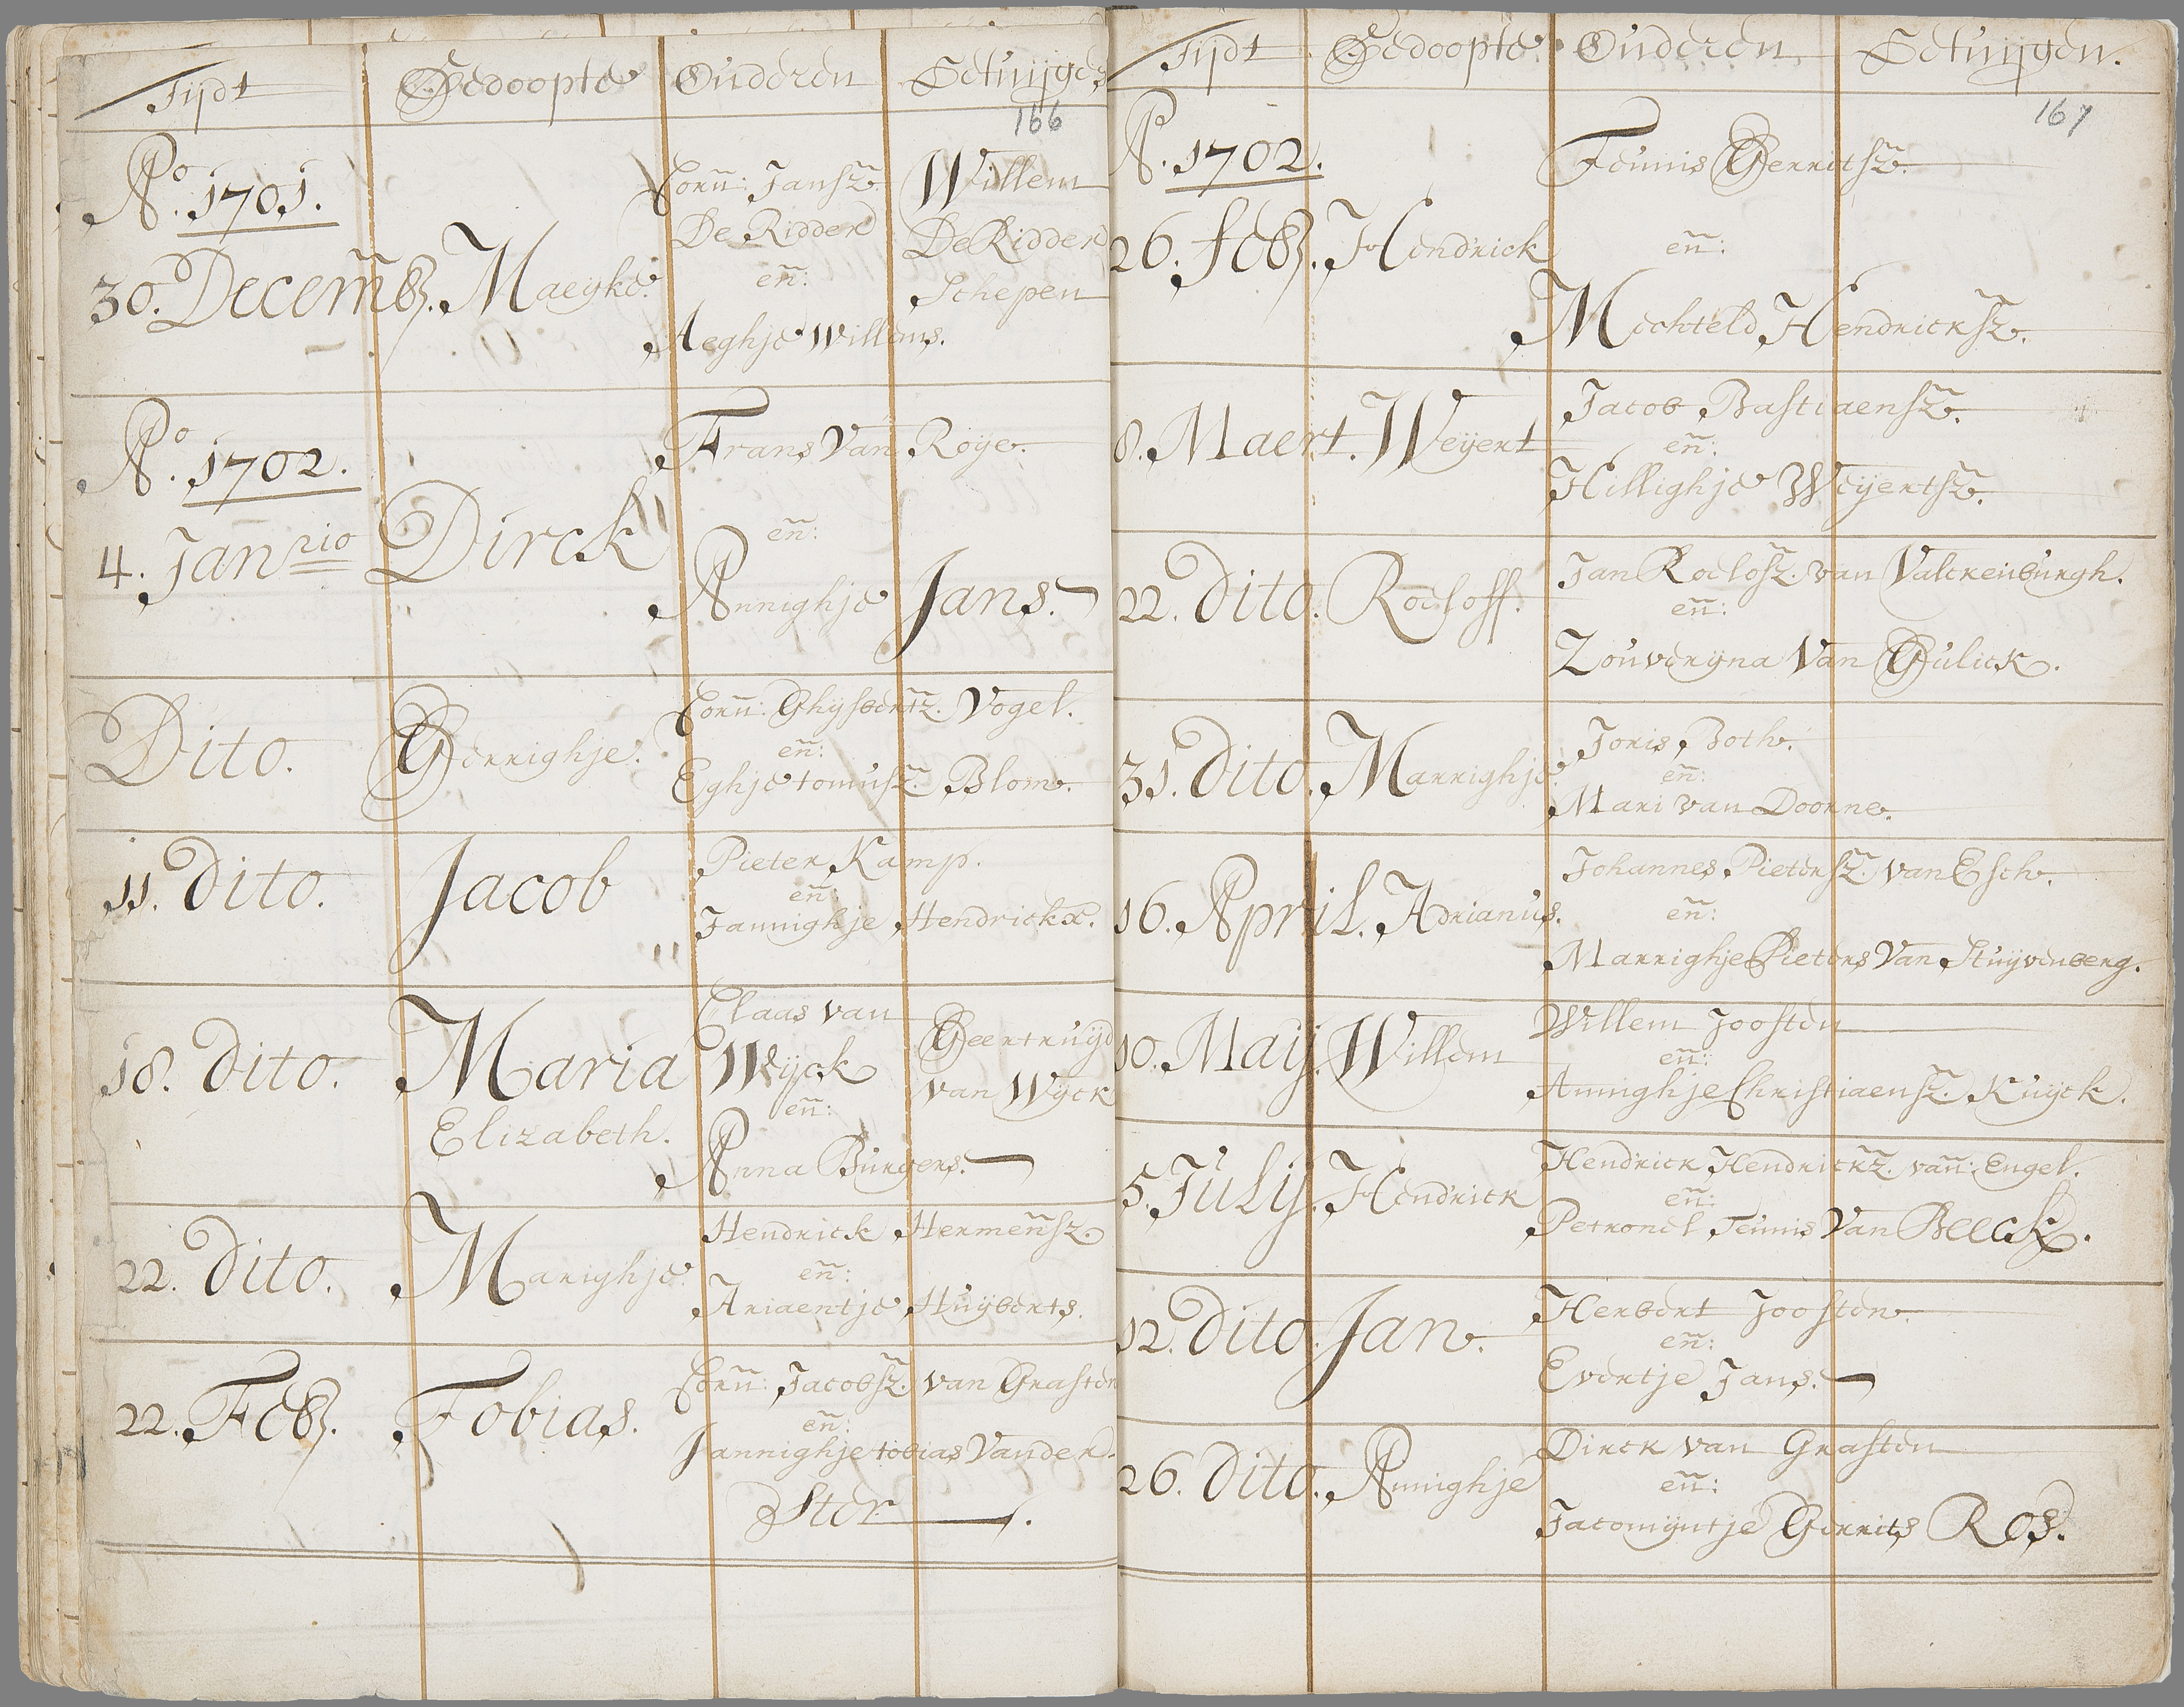 Tijdt Gedoopte Ouderen Getuijgen
166
Ao. 1701.
30. Decemb. Maeyke.
Corn: Jansz. Willem
De Ridder De Ridder
en: Schepen
Aeghje Willems.
Ao. 1702.
4. Janrio Dirck
Frans Van Roye.
en:
Annighje Jans.
Dito. Gerrighje.
Corn: Ghysbertz. Vogel.
en:
Eghje tonusz. Blom.
11. Dito. Jacob
Pieter Kamp.
en:
Jannighje Hendrickx.
18. Dito. Maria
Elizabeth.
Claas van Geertruijd
Wyck van Wyck
en:
Anna Burgers.
22. Dito. Marighje.
Hendrick Hermensz.
en:
Ariaentje Huijberts.
22. Feb. Tobias.
Corn: Jacobsz. van Grasten
en:
Jannighje tobias Vander.
Ster.
Tijdt Gedoopte Ouderen Getuijgen.
167
Ao. 1702.
26. feb. Hendrick
Teunis Gerritsz.
en:
Mechteld Hendricksz.
8. Maert. Weijert
Jacob Bastiaensz.
en:
Hillighje Weijertsz.
22. Dito. Roeloff.
Jan Roelosz. van Valckenburgh.
en:
Zouverijna Van Gulick.
31. Dito. Marrighje.
Joris Both.
en:
Mari van Doorne.
16. April. Adrianus.
Johannes Pietersz. van Esch.
en:
Marrighje Pieters Van Stuijvenberg.
10. Maij. Willem
Willem Joosten
en:
Annighje Christiaensz. Kuijck.
5. Julij. Hendrick
Hendrick Hendrickz. van: Engel.
en:
Petronel Teunis Van Beeck.
12. Dito. Jan.
Herbert Joosten.
en:
Evertje Jans.
26. Dito. Annighje
Dirck van Grasten
en:
Jacomijntje Gerrits Ros.